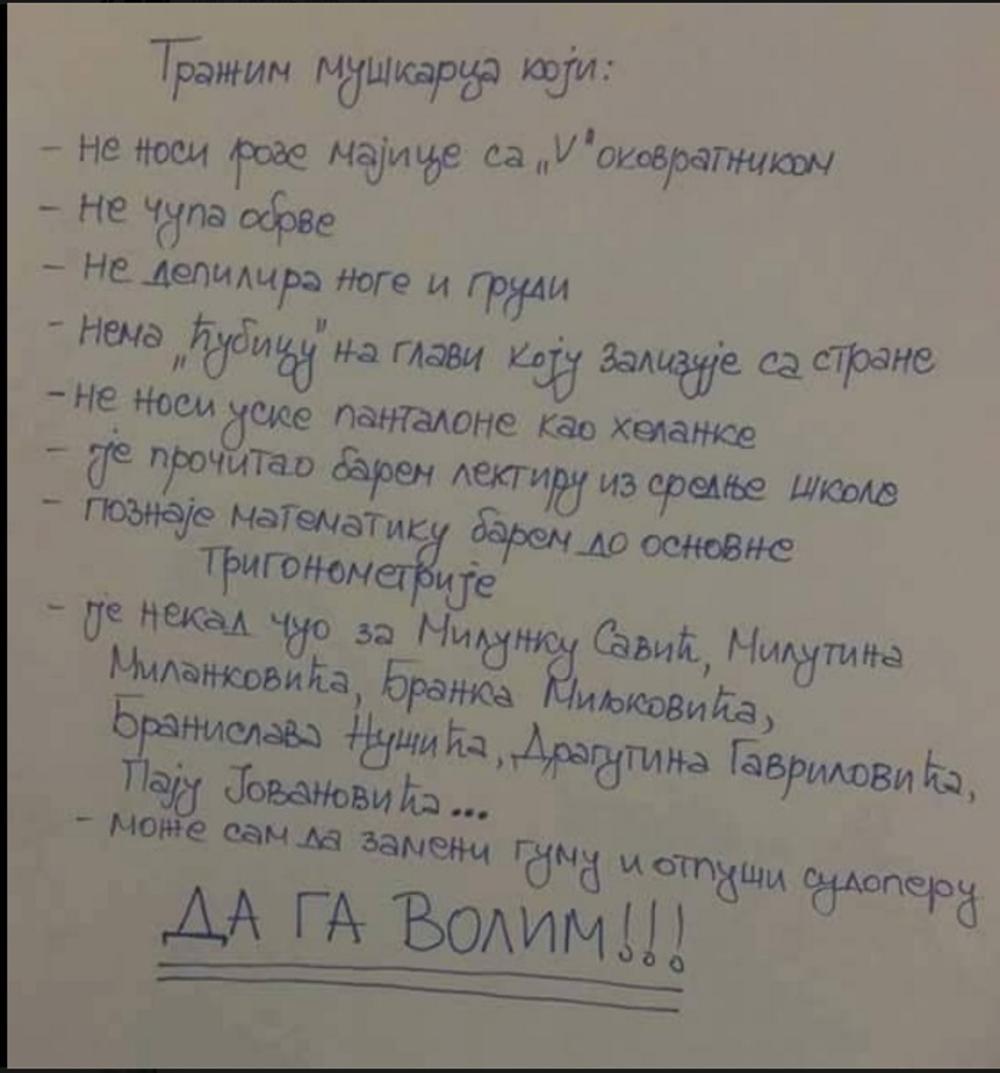 Тражим мушкарца који:
- не носи розе мајице са „V" оковратником
- не чупа обрве
- не депилира ноге и груди
- нема „ћубицу" на глави коју зализује са стране
- не носи уске панталоне као хеланке
- је прочитао барем лектиру из средње школе
- познаје математику барем до основне
тригонометрије
- је некад чуо за Милунку Савић, Милутина
Миланковића, Бранка Миљковића,
Бранислава Нушића, Драгутина Гавриловића,
Пају Јовановића...
- може сам да замени гуму и отпуши судоперу
ДА ГА ВОЛИМ!!!